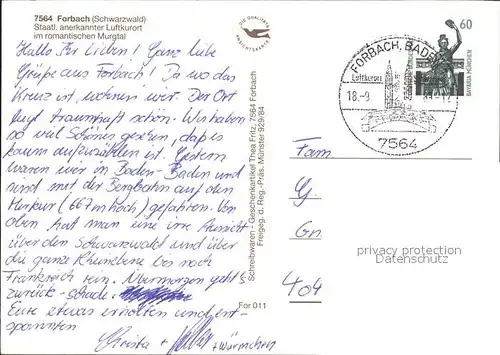 7564 Forbach (Schwarzwald)
Staatl. anerkannter Luftkurort
im romantischen Murgtal
Hallo Ihr Lieben! Ganz liebe
Grüße aus Forbach! Da wo das
Kreuz ist, wohnen wir. Der Ort
liegt traumhaft schön. Wir haben
so viel Schönes gesehen, daß es
kaum aufzuzählen ist. Gestern
waren wir in Baden-Baden und
sind mit der Bergbahn auf den
Merkur (667 m hoch) gefahren. Von
oben hat man eine irre Aussicht
über den Schwarzwald und über
die ganze Rheinebene bis nach
Frankreich rein. Übermorgen geht's
zurück - schade.
Eure etwas erholten und ent-
spannten
Christa + + Würmchen
DIE QUALITÄTS
ANSICHTSKARTE
Schreibwaren - Geschenkartikel Thea Fritz, 7564 Forbach
Freigeg. d. Reg.-Präs. Münster 929/84
For 011
FORBACH, BADEN
Luftkurort
18.-9
7564
60
BAVARIA MÜNCHEN
Fam.
G.
Gn
404
privacy protection
Datenschutz